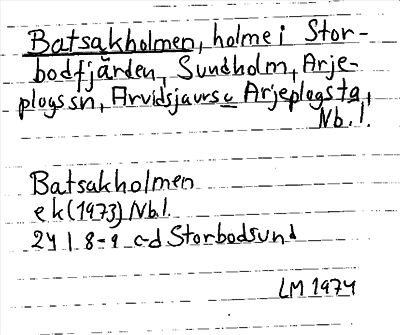 Batsakholmen, holme i Stor-
bodfjärden, Sundholm, Arje-
plogs sn, Arvidsjaurs o Arjeplogs ta,
Nb.l.
Batsakholmen
ek (1973) Nbl.
24 I 8-9 c-d Storbodsund
LM 1974